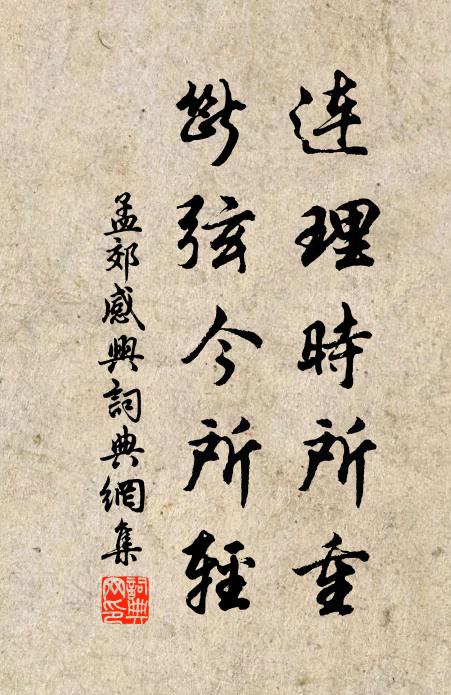 連理時所重
斷弦今所輕
孟郊感興詞典網集
詞典網印